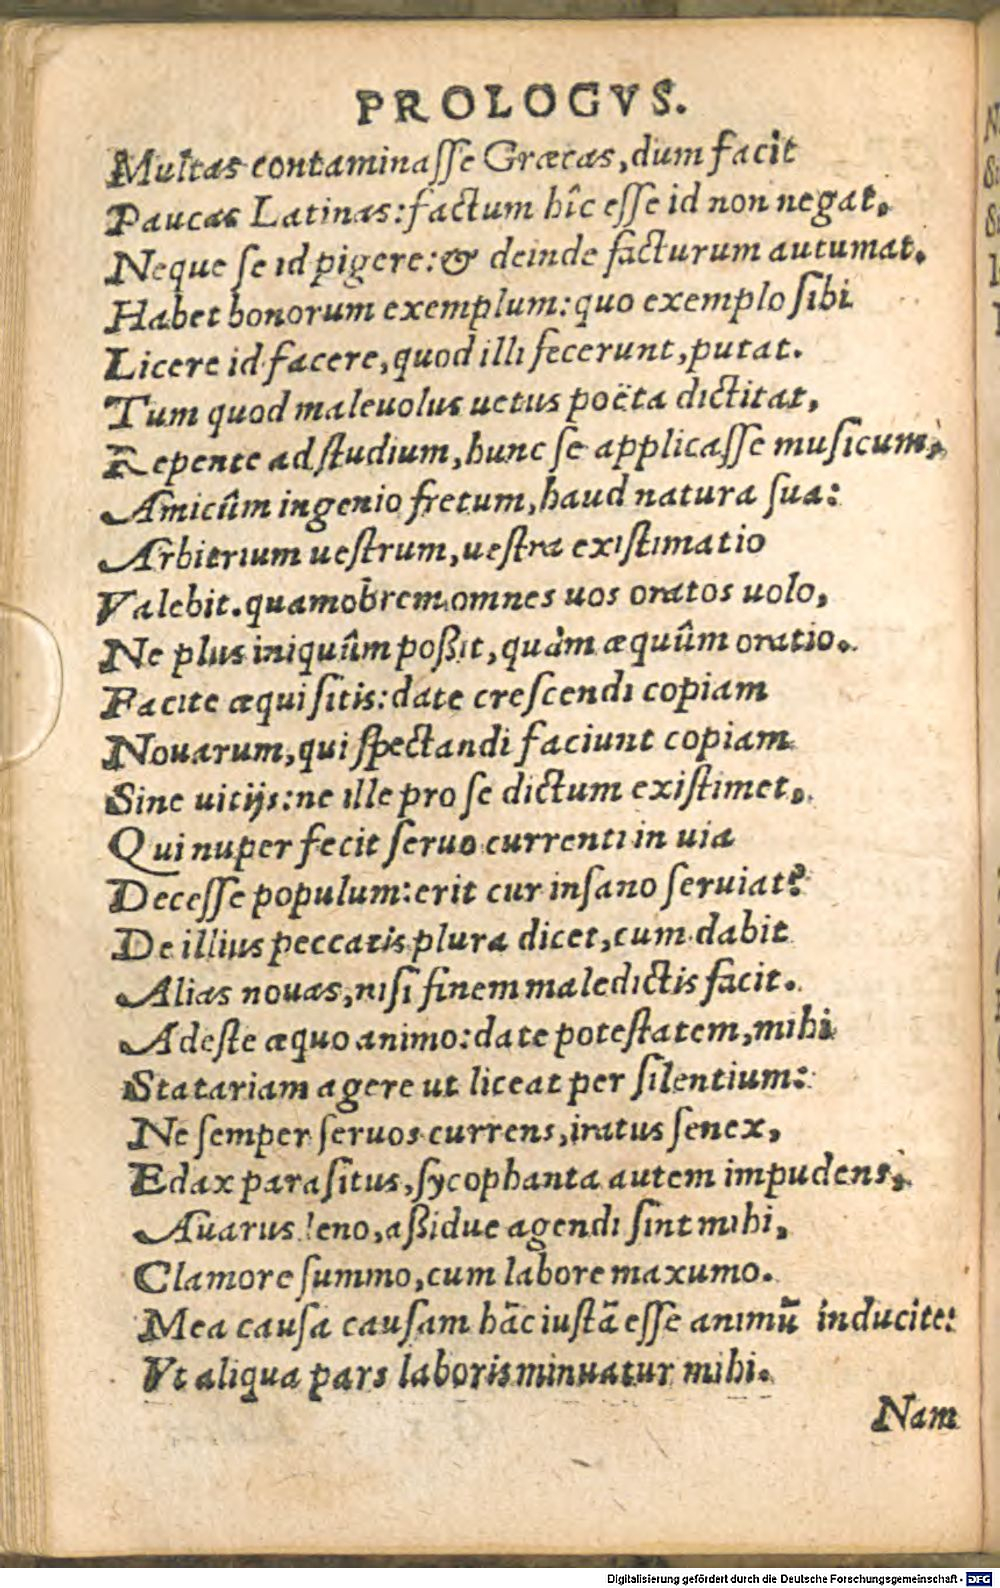 PROLOGVS.
Multas contaminasse Græcas, dum facit
Paucas Latinas: factum hîc esse id non negat,
Neque se id pigere: & deinde facturum autumat.
Habet bonorum exemplum: quo exemplo sibi
Licere id facere, quod illi fecerunt, putat.
Tum quod maleuolus uetus poëta dictitat,
Repente ad studium, hunc se applicasse musicum,
Amicûm ingenio fretum, haud natura sua:
Arbitrium uestrum, uestra existimatio
Valebit. quamobrem omnes uos oratos uolo,
Ne plus iniquûm poßit, quàm æquûm oratio.
Facite æqui sitis: date crescendi copiam
Nouarum, qui spectandi faciunt copiam
Sine uitijs: ne ille pro se dictum existimet,
Qui nuper fecit seruo currenti in uia
Decesse populum: erit cur insano seruiat?
De illius peccatis plura dicet, cum dabit
Alias nouas, nisi finem maledictis facit.
Adeste æquo animo: date potestatem, mihi
Statariam agere ut liceat per silentium:
Ne semper seruos currens, iratus senex,
Edax parasitus, sycophanta autem impudens,
Auarus leno, aßidue agendi sint mihi,
Clamore summo, cum labore maxumo.
Mea causa causam hãc iustã esse animũ inducite:
Vt aliqua pars laboris minuatur mihi.
Nam
Digitalisierung gefördert durch die Deutsche Forschungsgemeinschaft - DFG